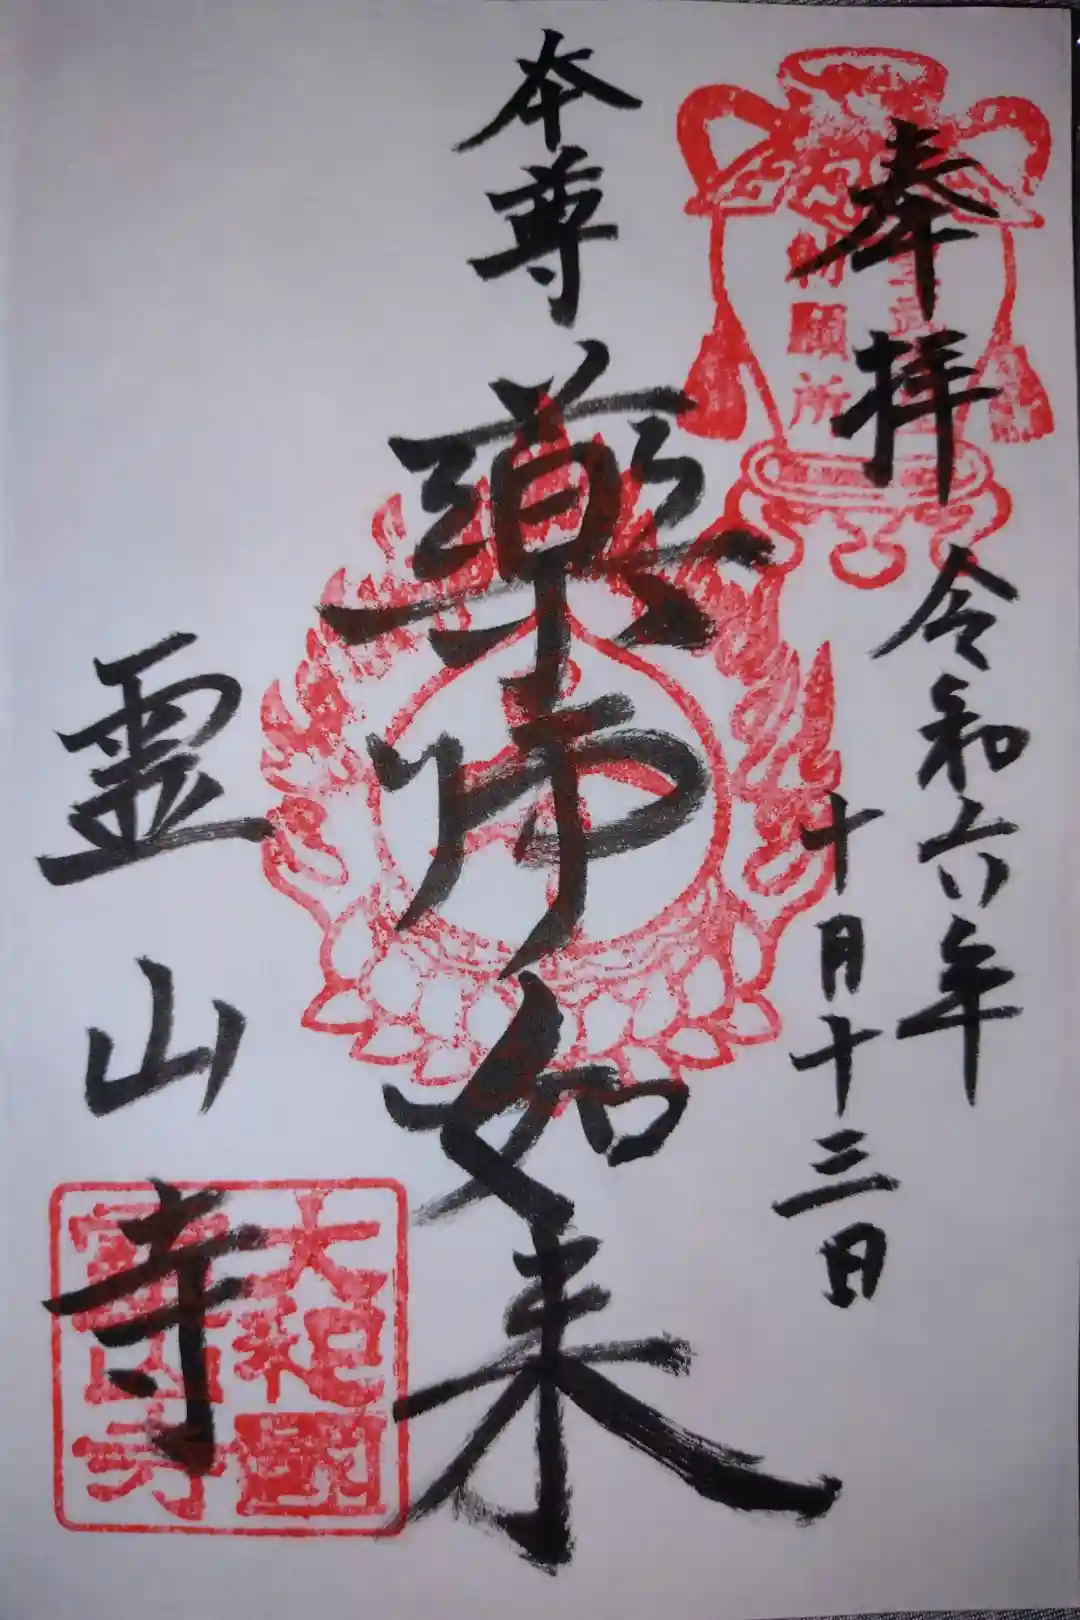 奉拝
令和六年
十月十三日
本尊
薬师如来
霊山寺
祈願所
大和國
霊山寺